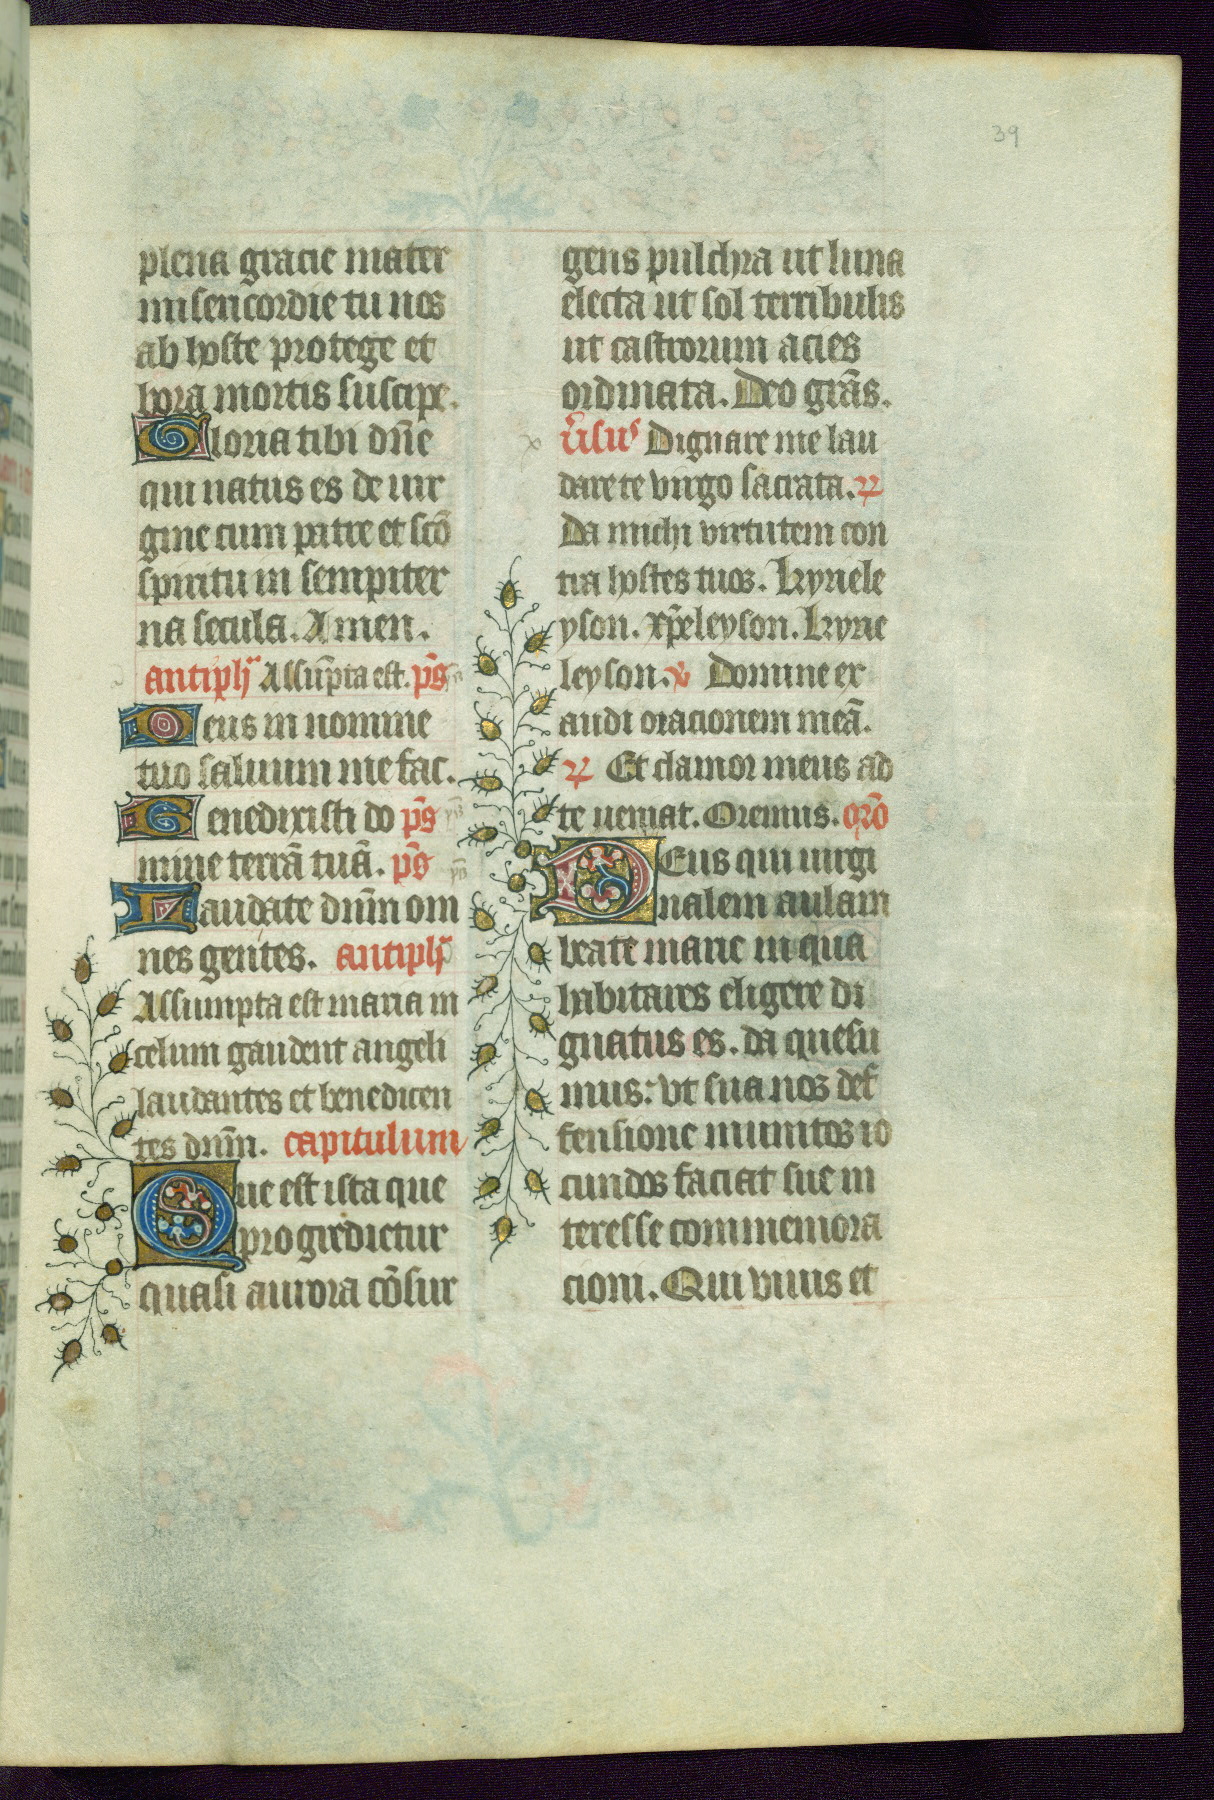 39
plena gracie mater
misericordie tu nos
ab hoste protege et
hora mortis suscipe.
Gloria tibi dn̄e
qui natus es de uir
gine cum patre et scō
spiritu in sempiter
na secula. Amen.
antiph̄ Assūpta est. pS̄
Deus in nomine
tuo saluum me fac.
Benedixisti do pS̄
mine terrā tuā. pS̄
Laudate dnm̄ om
nes gentes. antiph̄
Assumpta est maria in
celum gaudent angeli
laudantes et benedicen
tes dnm̄. capitulum
Que est ista que
progredietur
quasi aurora cōsur
gens pulchra ut luna
electa ut sol terribilis
ut castrorum acies
ordinata. Deo grās.
ūsus Dignare me lau
dare te virgo sacrata. ℟
Da michi virtutem con
tra hostes tuos. Kyriele
yson. xp̄eleyson. Kyrie
leyson. ℣ Domine ex
audi oracionem meā.
℟ Et clamor meus ad
te ueniat. Oremus. orō
DEus qui uirgi
nalem aulam
beate marie in qua
habitares eligere di
gnatus es. da quesu
mus: vt sua nos def
fensione munitos io
cundos faciat sue in
teresse commemora
cioni. Qui viuis et